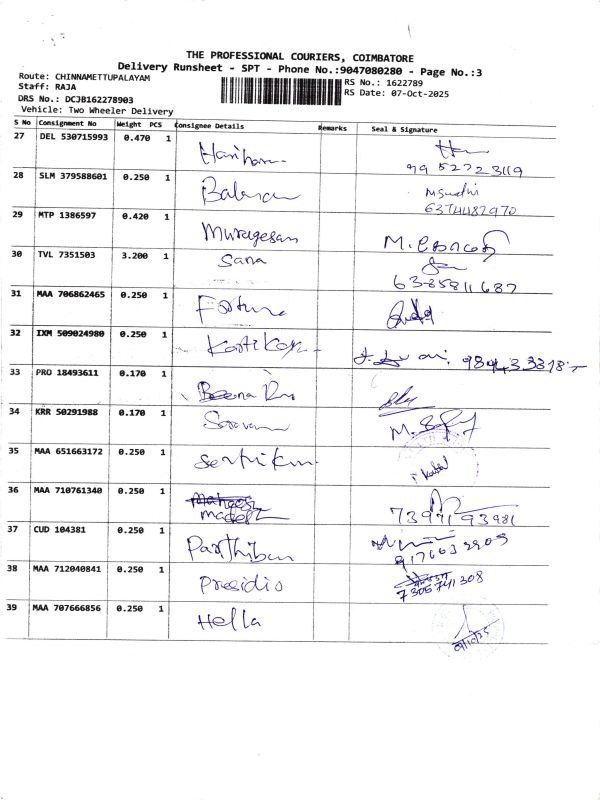 THE PROFESSIONAL COURIERS, COIMBATORE
Delivery Runsheet - SPT - Phone No.:9047080280 - Page No.:3
Route: CHINNAMETTUPALAYAM
RS No.: 1622789
Staff: RAJA
RS Date: 07-Oct-2025
DRS No.: DCJB162278903
Vehicle: Two Wheeler Delivery
S No Consignment No Weight PCS Consignee Details Remarks Seal & Signature
27 DEL 530715993 0.470 1 Hariharan
99 52723119
28 SLM 379588601 0.250 1
M Sudhi
6374482970
29 MTP 1386597 0.420 1 Murugesan
30 TVL 7351503 3.200 1 Sana
63-85811687
31 MAA 706862465 0.250 1
32 IXM 509024980 0.250 1
33 PRO 18493611 0.170 1 Beena
34 KRR 50291988 0.170 1
35 MAA 651663172 0.250 1
36 MAA 710761340 0.250 1
73971 93981
37 CUD 104381 0.250 1 Parthiban
38 MAA 712040841 0.250 1 Presidio
7306741308
39 MAA 707666856 0.250 1 Hella